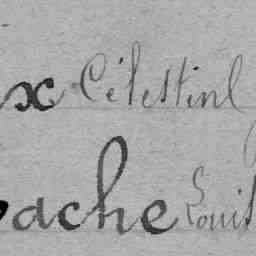 x Célestine
ache Louis